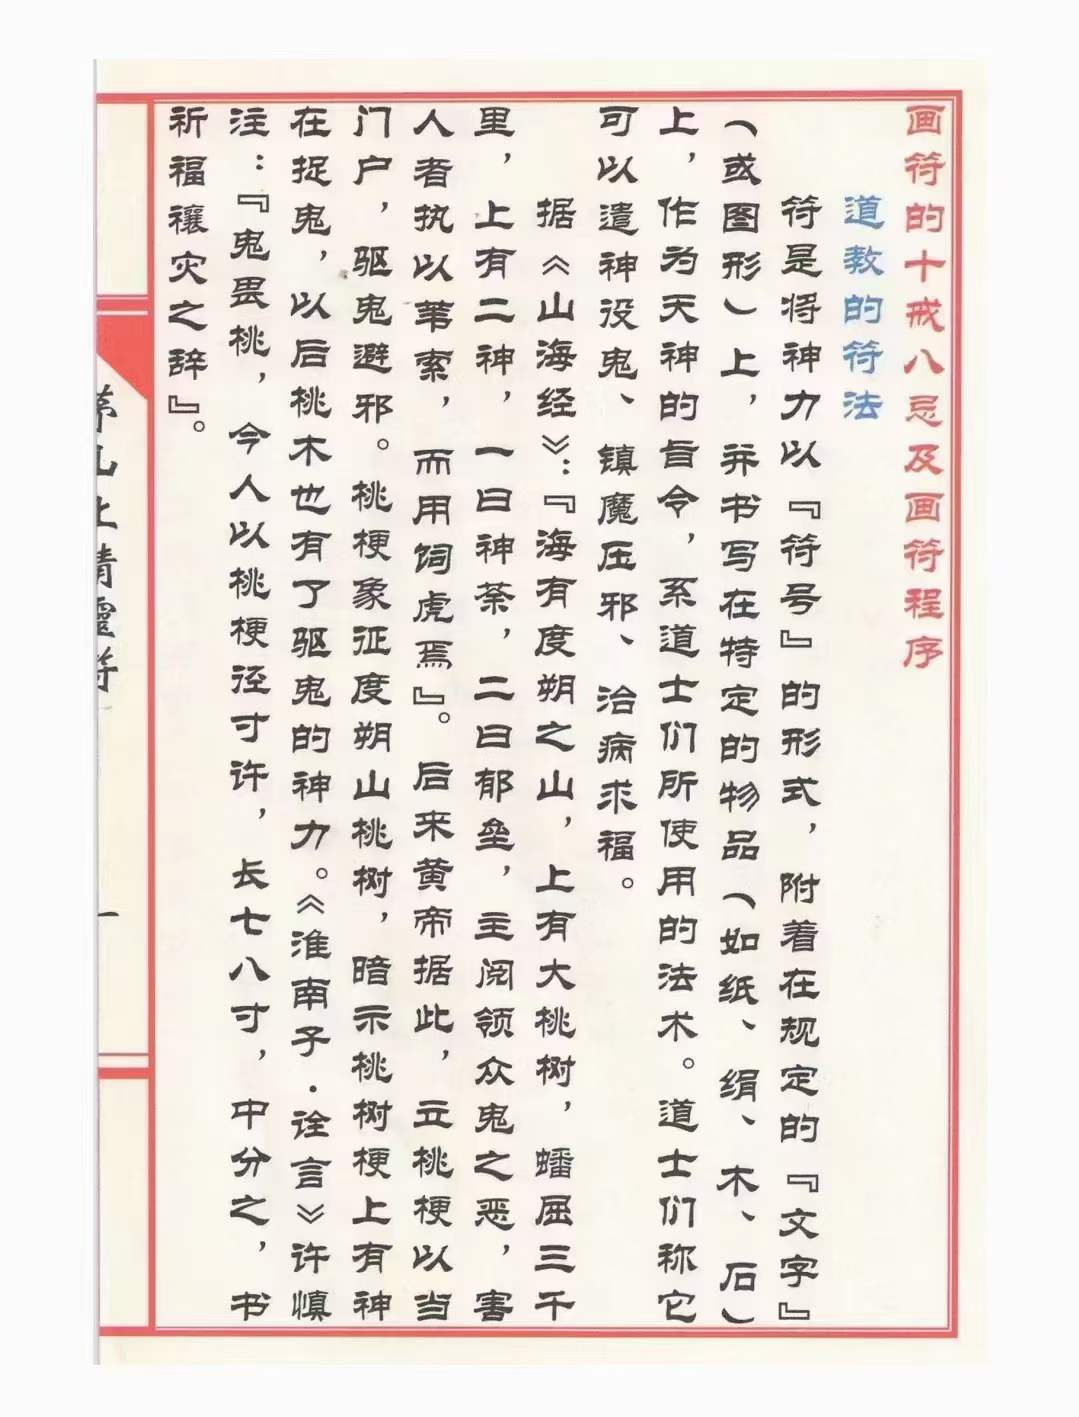 画符的十戒八忌及画符程序
道教的符法
符是将神力以『符号』的形式，附着在规定的『文字』
（或图形）上，并书写在特定的物品（如纸、绢、木、石）
上，作为天神的旨令，系道士们所使用的法术。道士们称它
可以遣神役鬼、镇魔压邪、治病求福。
据《山海经》：『海有度朔之山，上有大桃树，蟠屈三千
里，上有二神，一曰神荼，二曰郁垒，主阅领众鬼之恶，害
人者执以苇索，而用饲虎焉』。后来黄帝据此，立桃梗以当
门户，驱鬼避邪。桃梗象征度朔山桃树，暗示桃树梗上有神
在捉鬼，以后桃木也有了驱鬼的神力。《淮南子·诠言》许慎
注：『鬼畏桃，今人以桃梗径寸许，长七八寸，中分之，书
祈福禳灾之辞』。
茅山上清靈符
一